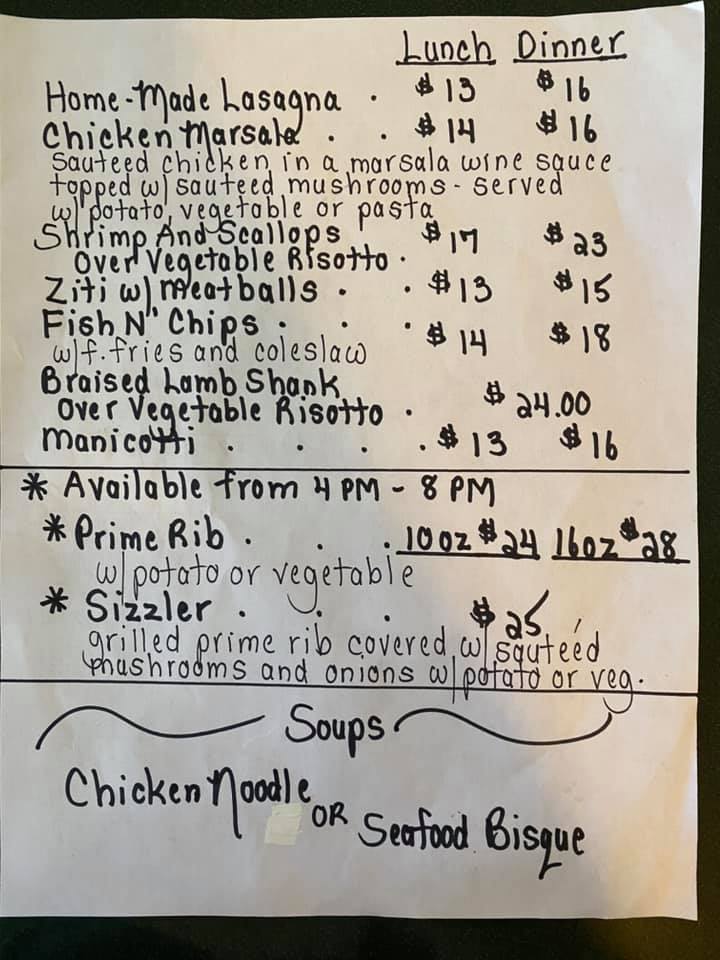 Lunch Dinner
Home-Made Lasagna . $13 $16
Chicken Marsala . . $14 $16
Sauteed chicken in a marsala wine sauce
topped w/ sauteed mushrooms - served
w/ potato, vegetable or pasta
Shrimp And Scallops $17 $23
Over Vegetable Risotto .
Ziti w/ meatballs . . $13 $15
Fish N' Chips . . . $14 $18
w/f.fries and coleslaw
Braised Lamb Shank
Over Vegetable Risotto . $24.00
Manicotti . . . . $13 $16
* Available from 4 PM - 8 PM
* Prime Rib . . . 10oz $24 16oz $28
w/ potato or vegetable
* Sizzler . . . $25
grilled prime rib covered w/ sauteéd
mushrooms and onions w/ potato or veg.
Soups
Chicken Noodle OR Seafood Bisque